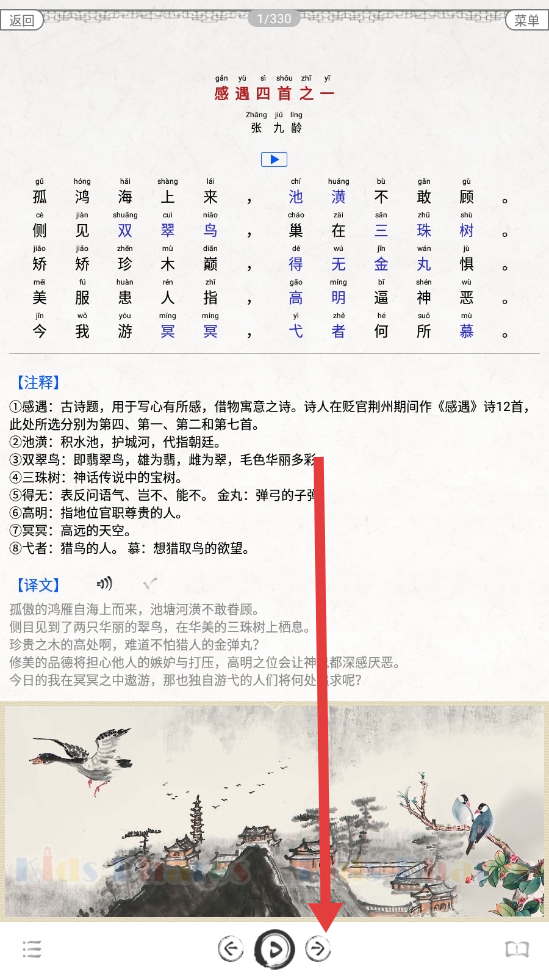 返回
1/330
菜单
gǎn yù sì shǒu zhī yī
感遇四首之一
Zhāng jiǔ líng
张九龄
gū hóng hǎi shàng lái chí huáng bù gǎn gù
孤鸿海上来，池潢不敢顾。
cè jiàn shuāng cuì niǎo cháo zài sān zhū shù
侧见双翠鸟，巢在三珠树。
jiǎo jiǎo zhēn mù diān dé wú jīn wán jù
矫矫珍木巅，得无金丸惧。
měi fú huàn rén zhǐ gāo míng bī shén wù
美服患人指，高明逼神恶。
jīn wǒ yóu míng míng yì zhě hé suǒ mù
今我游冥冥，弋者何所慕。
【注释】
①感遇：古诗题，用于写心有所感，借物寓意之诗。诗人在贬官荆州期间作《感遇》诗12首，
此处所选分别为第四、第一、第二和第七首。
②池潢：积水池，护城河，代指朝廷。
③双翠鸟：即翡翠鸟，雄为翡，雌为翠，毛色华丽多彩
④三珠树：神话传说中的宝树。
⑤得无：表反问语气、岂不、能不。 金丸：弹弓的子弹
⑥高明：指地位官职尊贵的人。
⑦冥冥：高远的天空。
⑧弋者：猎鸟的人。 慕：想猎取鸟的欲望。
【译文】
孤傲的鸿雁自海上而来，池塘河潢不敢眷顾。
侧目见到了两只华丽的翠鸟，在华美的三珠树上栖息。
珍贵之木的高处啊，难道不怕猎人的金弹丸？
修美的品德将担心他人的嫉妒与打压，高明之位会让神 都深感厌恶。
今日的我在冥冥之中遨游，那也独自游弋的人们将何处 求呢？